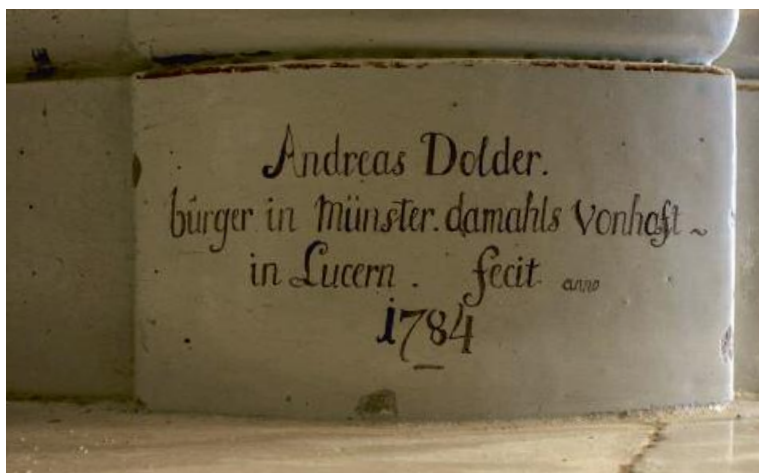 Andreas Dolder.
bürger in Münster. damahls Vonhaft ~
in Lucern. fecit anno
1784